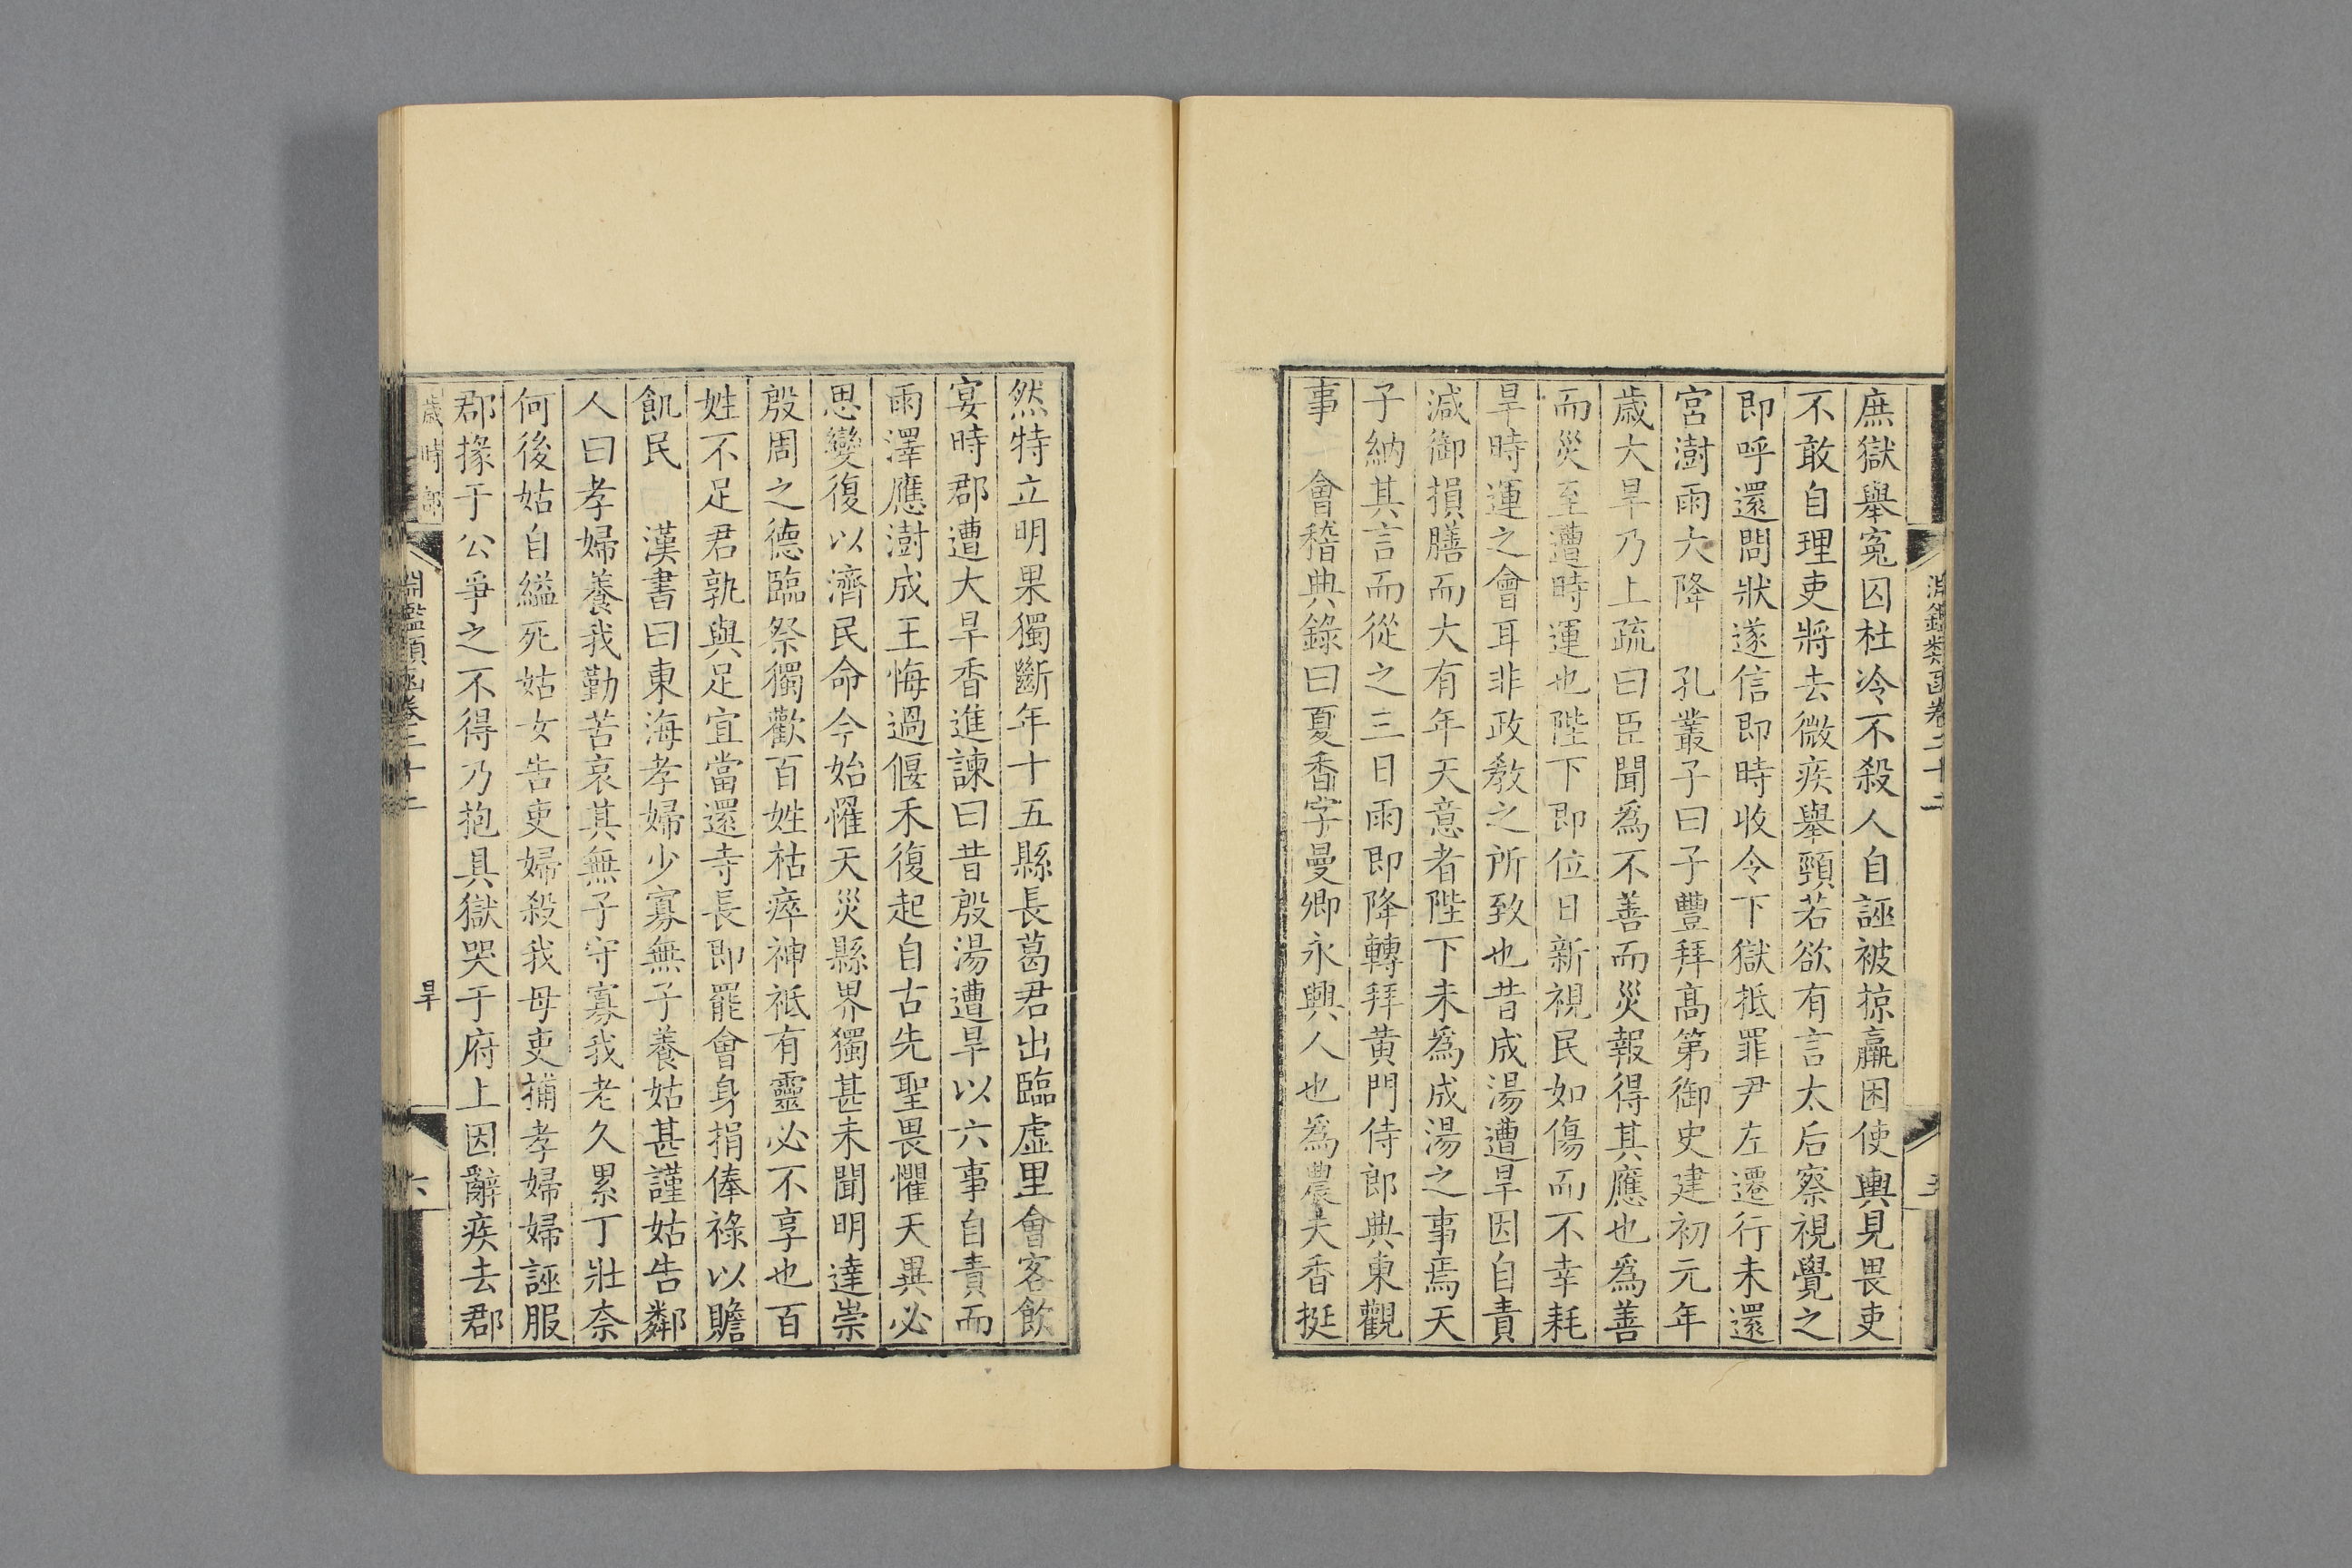 淵鑑類函卷二十二
庶獄舉寃囚杜冷不殺人自誣被掠羸困使輿見畏吏
不敢自理吏將去微疾舉頸若欲有言太后察視覺之
即呼還問狀遂信即時收令下獄抵罪尹左遷行未還
宮澍雨大降　孔叢子曰子豐拜高第御史建初元年
歲大旱乃上疏曰臣聞爲不善而災報得其應也爲善
而災至遭時運也陛下即位日新視民如傷而不幸耗
旱時運之會耳非政教之所致也昔成湯遭旱因自責
減御損膳而大有年天意者陛下未爲成湯之事焉天
子納其言而從之三日雨即降轉拜黃門侍郎典東觀
事　會稽典錄曰夏香字曼卿永興人也爲農夫香挺
然特立明果獨斷年十五縣長葛君出臨虛里會客飲
宴時郡遭大旱香進諫曰昔殷湯遭旱以六事自責而
雨澤應澍成王悔過偃禾復起自古先聖畏懼天異必
思變復以濟民命今始罹天災縣界獨甚未聞明達崇
殷周之德臨祭獨歡百姓枯瘁神祗有靈必不享也百
姓不足君孰與足宜當還寺長即罷會身捐俸祿以贍
飢民　漢書曰東海孝婦少寡無子養姑甚謹姑告鄰
人曰孝婦養我勤苦哀其無子守寡我老久累丁壯奈
何後姑自縊死姑女告吏婦殺我母吏捕孝婦婦誣服
郡掾于公爭之不得乃抱具獄哭于府上因辭疾去郡
歲時部
淵鑑類函卷二十二
旱
六